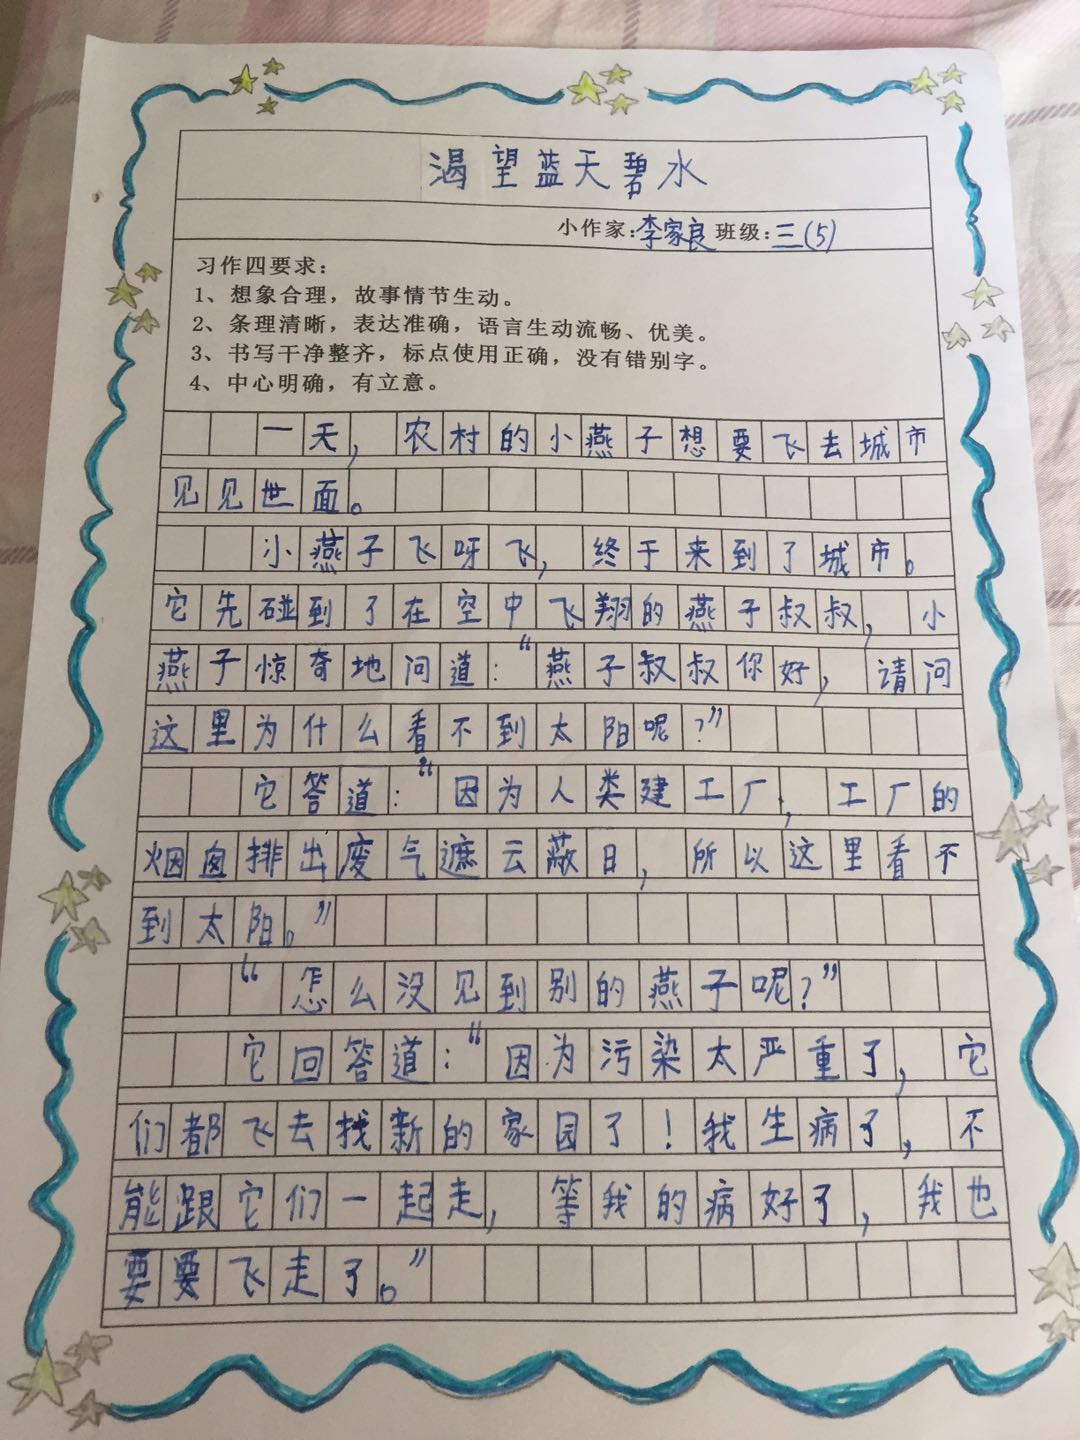 渴望蓝天碧水
小作家:李家良班级:三(5)
习作四要求:
1、想象合理，故事情节生动。
2、条理清晰，表达准确，语言生动流畅、优美。
3、书写干净整齐，标点使用正确，没有错别字。
4、中心明确，有立意。
一天，农村的小燕子想要飞去城市
见见世面。
小燕子飞呀飞，终于来到了城市。
它先碰到了在空中飞翔的燕子叔叔，小
燕子惊奇地问道:“燕子叔叔你好，请问
这里为什么看不到太阳呢?”
它答道:“因为人类建工厂，工厂的
烟囱排出废气遮云蔽日，所以这里看不
到太阳。”
“怎么没见到别的燕子呢?”
它回答道:“因为污染太严重了，它
们都飞去找新的家园了!我生病了，不
能跟它们一起走，等我的病好了，我也
要要飞走了。”